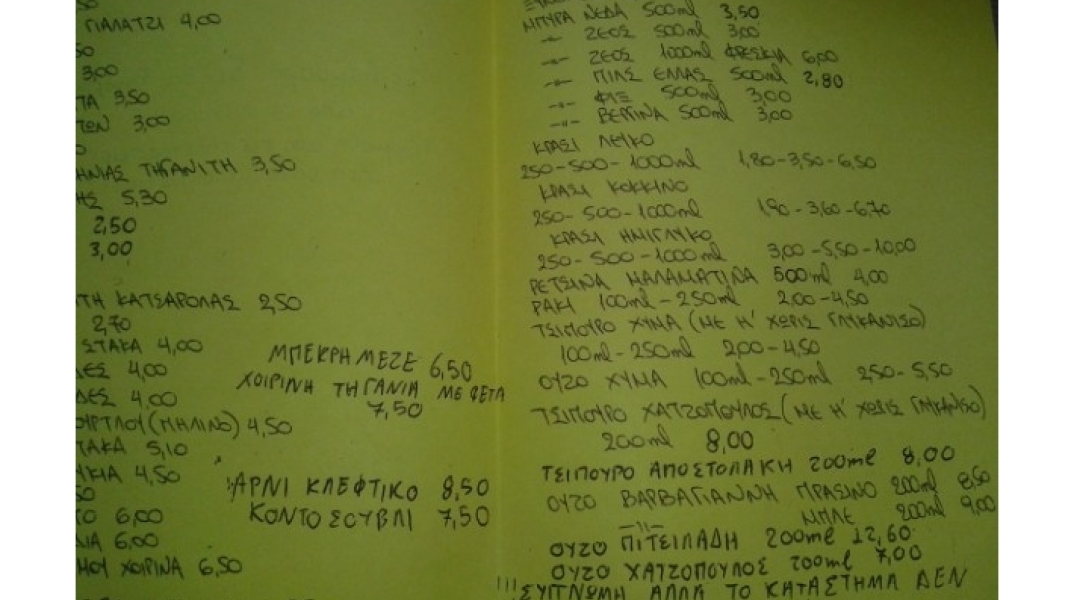 ΓΙΑΛΑΤΖΙ 4,00
50
3,00
ΤΑ 3,50
ΤΩΝ 3,00
ΗΝΙΑΣ ΤΗΓΑΝΙΤΗ 3,50
ΗΣ 5,30
2,50
3,00
ΤΗ ΚΑΤΣΑΡΟΛΑΣ 2,50
2,70
ΣΤΑΚΑ 4,00
ΜΠΕΚΡΗ ΜΕΖΕ 6,50
ΛΕΣ 4,00
ΧΟΙΡΙΝΗ ΤΗΓΑΝΙΑ ΜΕ ΦΕΤΑ
7,50
ΔΕΣ 4,00
ΟΥΡΤΛΟΥ(ΜΑΛΙΝΟ) 4,50
ΤΑΚΑ 5,10
ΥΚΙΑ 4,50
50
ΑΡΝΙ ΚΛΕΦΤΙΚΟ 8,50
ΚΟΝΤΟΣΟΥΒΛΙ 7,50
ΤΟ 6,00
ΔΙΑ 6,00
ΜΟΥ ΧΟΙΡΙΝΑ 6,50
ΜΠΥΡΑ ΝΕΔΑ 500ml 3,50
-//- ΖΕΟΣ 500ml 3,00
-//- ΖΕΟΣ 1000ml ΦΡΕΣΚΙΑ 6,00
-//- ΠΙΛΣ ΕΛΛΑΣ 500ml 2,80
-//- ΦΙΞ 500ml 3,00
-//- ΒΕΡΓΙΝΑ 500ml 3,00
ΚΡΑΣΙ ΛΕΥΚΟ
250-500-1000ml 1,80-3,50-6,50
ΚΡΑΣΙ ΚΟΚΚΙΝΟ
250-500-1000ml 1,90-3,60-6,70
ΚΡΑΣΙ ΗΜΙΓΛΥΚΟ
250-500-1000ml 3,00-5,50-10,00
ΡΕΤΣΙΝΑ ΜΑΛΑΜΑΤΙΝΑ 500ml 4,00
ΡΑΚΙ 100ml-250ml 2,00-4,50
ΤΣΙΠΟΥΡΟ ΧΥΜΑ (ΜΕ Η' ΧΩΡΙΣ ΓΛΥΚΑΝΙΣΟ)
100ml-250ml 2,00-4,50
ΟΥΖΟ ΧΥΜΑ 100ml-250ml 2,50-5,50
ΤΣΙΠΟΥΡΟ ΧΑΤΖΟΠΟΥΛΟΣ(ΜΕ Η' ΧΩΡΙΣ ΓΛΥΚΑΝΙΣΟ)
200ml 8,00
ΤΣΙΠΟΥΡΟ ΑΠΟΣΤΟΛΑΚΗ 200ml 8,00
ΟΥΖΟ ΒΑΡΒΑΓΙΑΝΝΗ ΠΡΑΣΙΝΟ 200ml 8,50
-//- ΜΠΛΕ 200ml 9,00
ΟΥΖΟ ΠΙΤΣΙΛΑΔΗ 200ml 12,60
ΟΥΖΟ ΧΑΤΖΟΠΟΥΛΟΣ 200ml 7,00
!!! ΣΥΓΓΝΩΜΗ ΑΛΛΑ ΤΟ ΚΑΤΑΣΤΗΜΑ ΔΕΝ